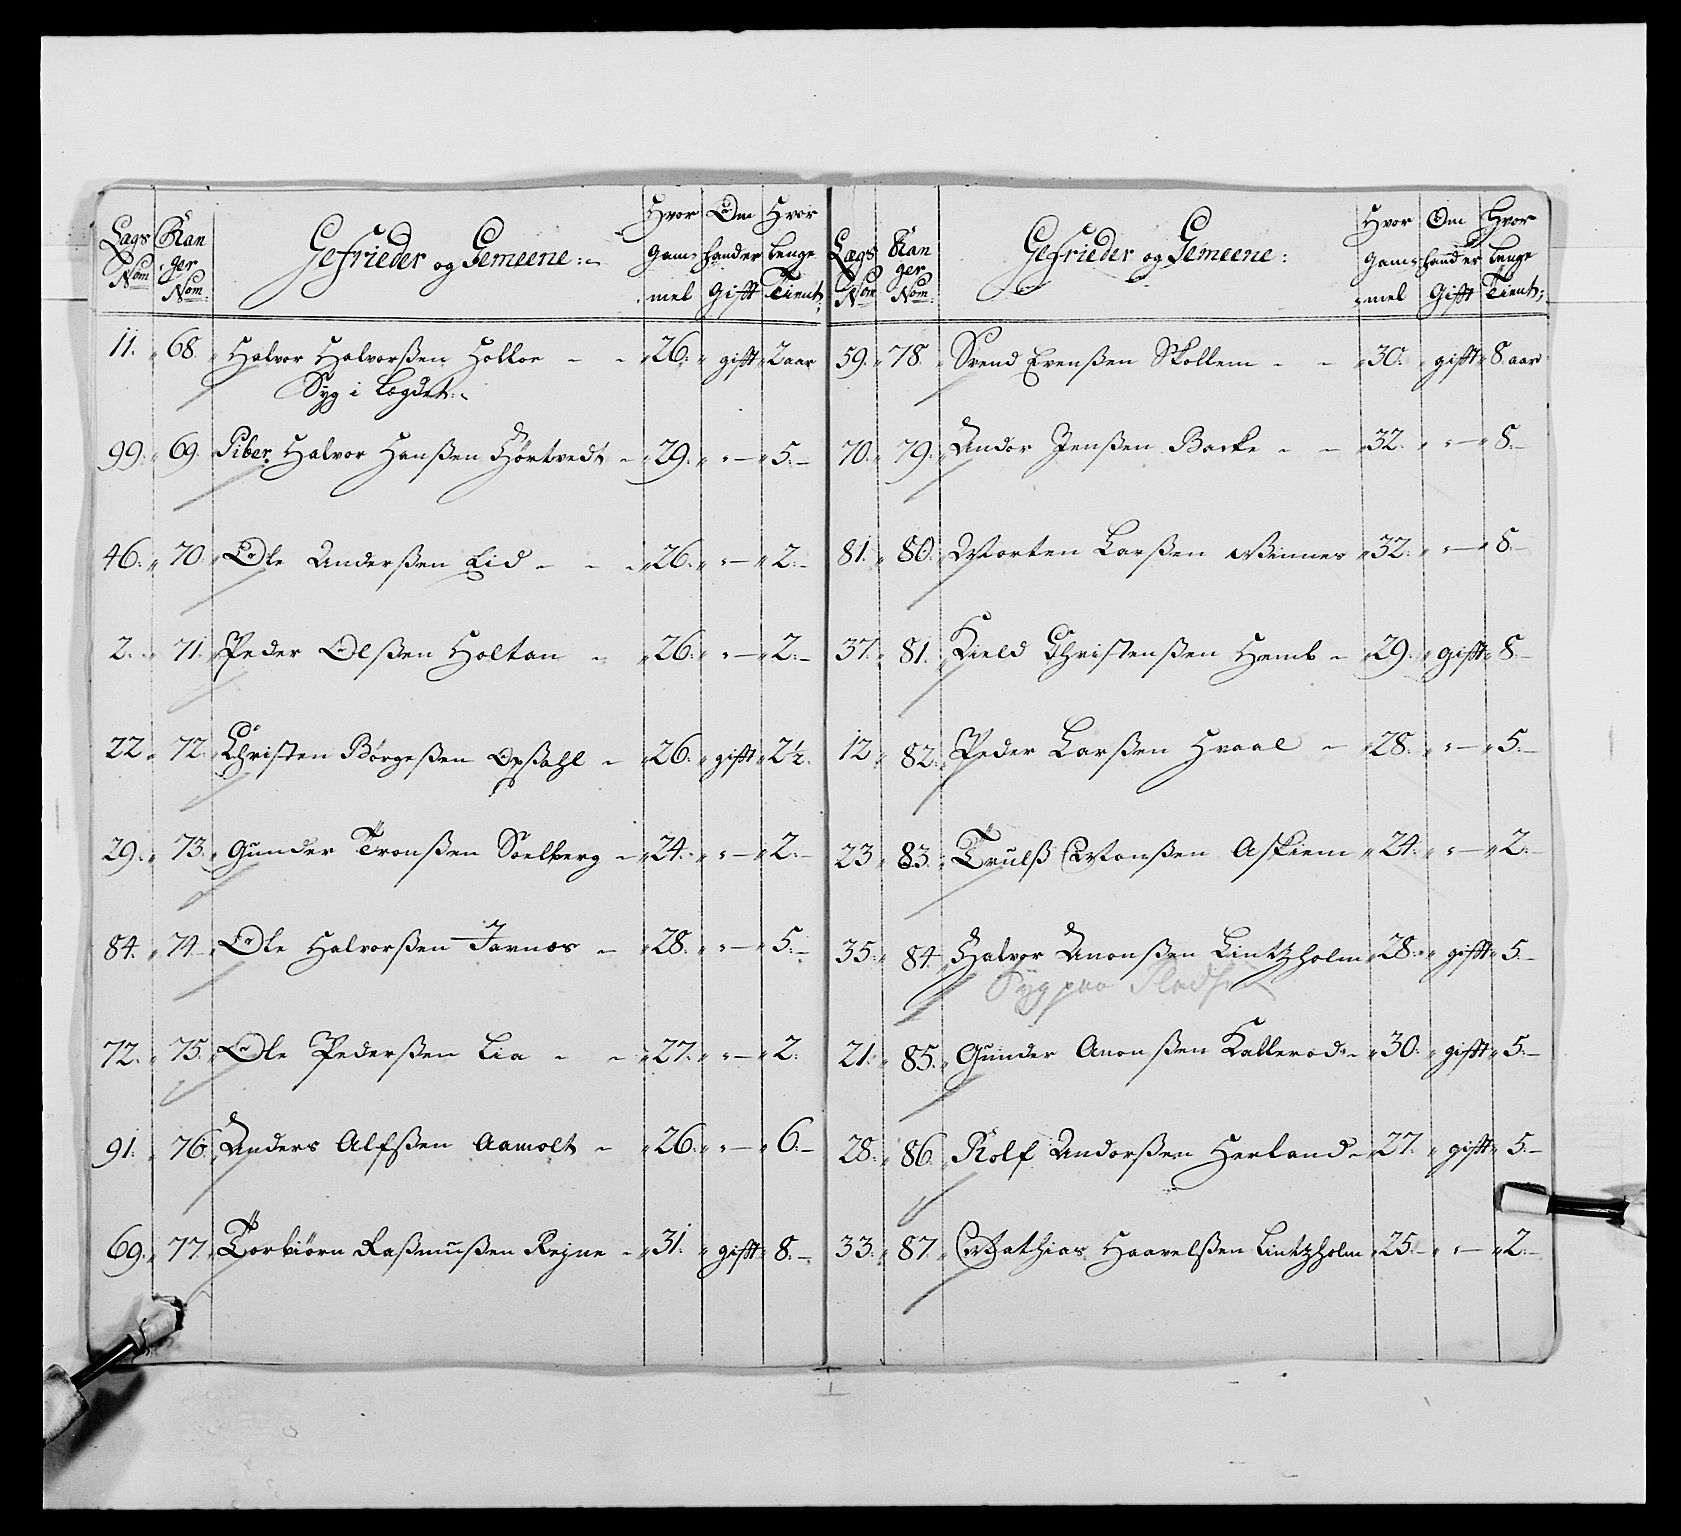 Lægs Nom | Ran ger Nom: | Gefrieder og Gemeene: | Hvor Gam= mel | Om hand er Gifft | Hvor lenge Tient,
11. 68. Halvor Halvorßen Holtoe - - 26. gifft 2 aar
Syg i Lægdet.
99. 69. Piber Halvor Hanßen Hørtvedt - 29. " — 5. —
46. 70. Ole Anderßen Eid - - - 26. " — 2. —
2. 71. Peder Olßen Holtan - 26. " — 2. —
22. 72. Christen Børgeßen Opsahl - 26. gifft 2½.
29. 73. Gunder Tronßen Soelberg - 24. " — 2. —
84. 74. Ole Halvorßen Jarnæs - 28. " — 5. —
72. 75. Ole Pederßen Lia - - 27. " — 2.
91. 76. Anders Alfßen Aamolt - 26. " — 6. —
69. 77. Torbiørn Raßmußen Rejne - 31. gifft 8. —
Lægs Nom | Ran ger Nom: | Gefrieder og Gemeene: | Hvor Gam= mel | Om hand er Gifft | Hvor lenge Tient;
59. 78. Svend Evenßen Skollem - - 30. gifft 8. aar
70. 79. Andor Jenßen Backe - - 32. " — 8. —
81. 80. Morten Larßen Winnes 32. " — 8. —
37. 81. Kield Christenßen Hemb - 29. gifft 8. —
12. 82. Peder Larßen Hvaal - 28. " — 5. —
23. 83. Trulß Monßen Askiem 24. " — 2. —
35. 84. Halvor Anonßen Lintzholm 28. gifft 5. —
Syg paa Pladsen
21. 85. Gunder Anonßen Kallerod - 30. gifft 5. —
28. 86. Rolf Andorßen Herland - 27. gifft 5. —
33. 87. Mathias Haavelßen Lintzholm 25. " — 2. —